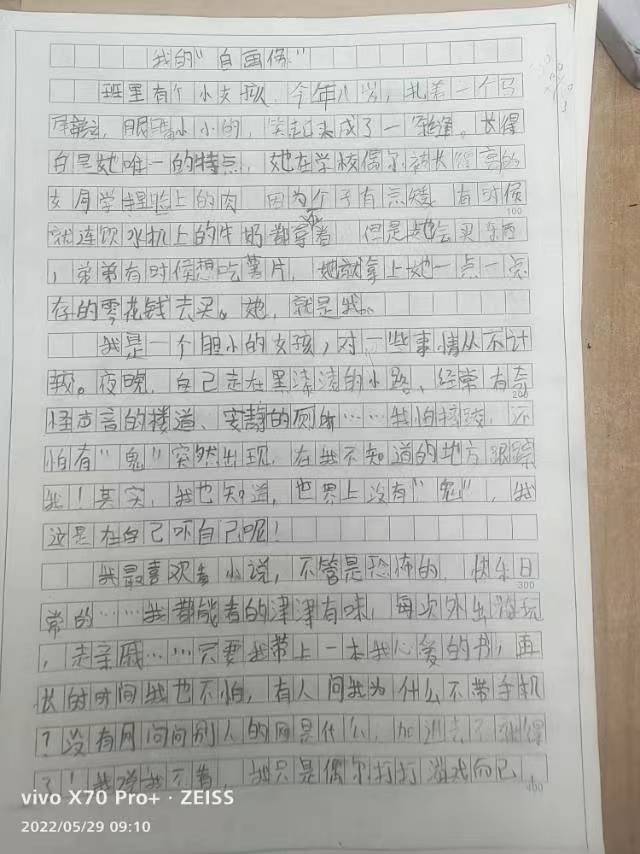 我的“自画像”
班里有个小女孩，今年八岁，扎着一个马
尾辫，眼睛小小的，笑起来成了一条缝。长得
白是她唯一的特点，她在学校偶尔被长得高的
女同学捏脸上的肉，因为个子有点矮，有时候
就连饮水机上的牛奶都拿不着，但是她会买东西
，弟弟有时候想吃薯片，她就拿上她一点一点
存的零花钱去买。她，就是我。
100
我是一个胆小的女孩，对一些事情从不计
较。夜晚，自己走在黑漆漆的小路、经常有奇
200
怪声音的楼道、安静的厕所……我怕 还
怕有“鬼”突然出现，在我不知道的地方跟踪
我！其实，我也知道，世界上没有“鬼”，我
这是在自己吓自己呢！
我最喜欢看小说，不管是恐怖的、快乐日
300
常的……我都能看的津津有味，每次外出游玩
，走亲戚……只要我带上一本我心爱的书，再
长的时间我也不怕，有人问我为什么不带手机
？没有网问问别人的网是什么，加进去不就得
了！我说我不着，我只是偶尔打打游戏而已
400
vivo X70 Pro+ · ZEISS
2022/05/29 09:10